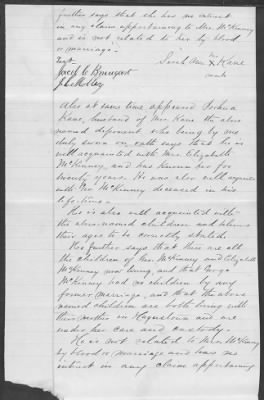 further says that she has no interest
in any claim appertaining to Mrs. McKinney
and is not related to her by blood
or marriage.
her
Sarah Ann X Kane
mark
Test
Also at same time appeared Joshua
Kane, husband of Mrs. Kane the above
named deponent who being by me
duly sworn on oath says that he is
well acquainted with Mrs. Elizabeth
McKinney, and has known her for
twenty years. He was also well acquainted
with Geo McKinney deceased in his
life-time.
He is also well acquainted with
the above-named children and believes
their ages to be correctly stated.
He further says that these are all
the children of Geo. McKinney and Elizabeth
McKinney now living, and that George
McKinney had no children by any
former marriage, and that the above
named children are both living with
their mother in Hagerstown and are
under her care and custody.
He is not related to Mrs. McKinney
by blood or marriage and has no
interest in any claim appertaining